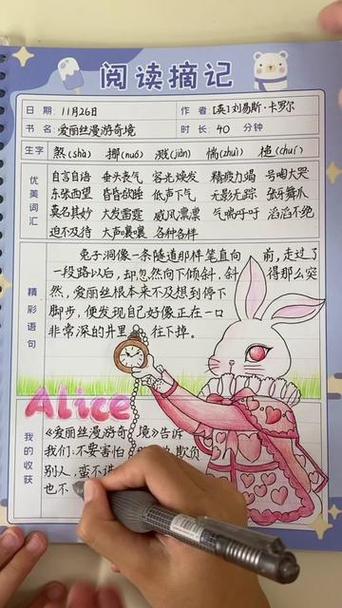 阅读摘记
日期 11月26日 作者 [英]刘易斯·卡罗尔
书名 爱丽丝漫游奇境 时长 40 分钟
生字 煞(shà) 挪(nuó) 溅(jiàn) 惴(zhuì) 槌(chuí)
优美词汇
自言自语 垂头丧气 容光焕发 精疲力竭 号啕大哭
东张西望 昏昏欲睡 低声下气 无影无踪 张牙舞爪
莫名其妙 大发雷霆 威风凛凛 气喘吁吁 滔滔不绝
迫不及待 大声嚷嚷 各种各样
精彩语句
兔子洞像一条隧道那样笔直向 前,走过了
一段路以后,却忽然向下倾斜,斜 得那么突
然,爱丽丝根本来不及想到停下
脚步,便发现自己好像正在一口
非常深的井里 往下掉。
Alice
我的收获
《爱丽丝漫游奇境》告诉
我们:不要害怕 欺负
别人,蛮不讲
也不